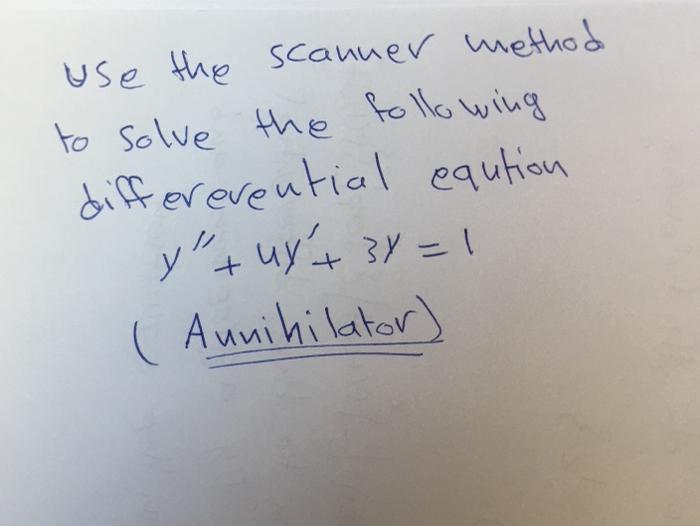 use the scanner method
to solve the following
differerential eqution
y'' + 4y' + 3y = 1
(Annihilator)